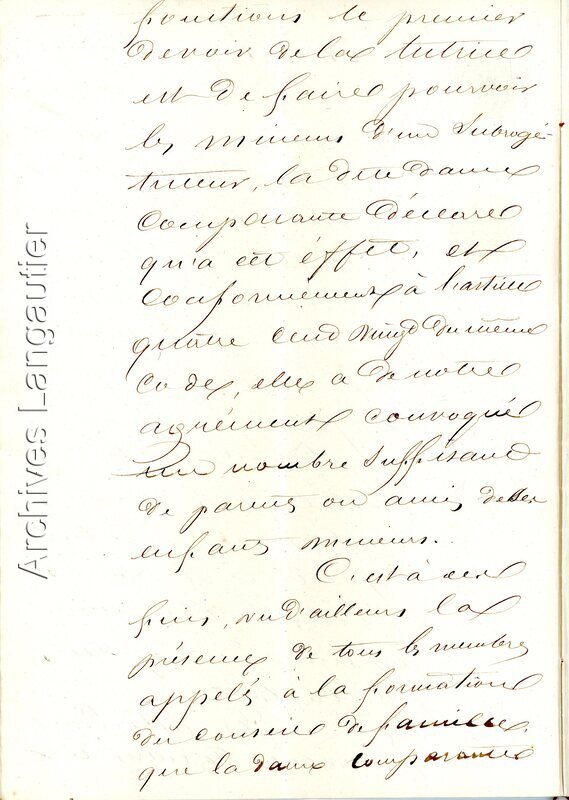 fonctions le premier
devoir de la tutrice
est de faire pourvoir
les mineurs d'un Subrogé-
tuteur, la dite dame
comparante déclare
qu'a cet éffet, et
conformément à l'article
quatre cend vingt du même
code, elle a de notre
agrément convoqué
un nombre suffisand
de parents ou amis de ses
enfants mineurs.
C'est à ces
fins, vu d'ailleurs la
présence de tous les membres
appelés à la formation
du conseil de famille,
que la dame comparante
Archives Langautier